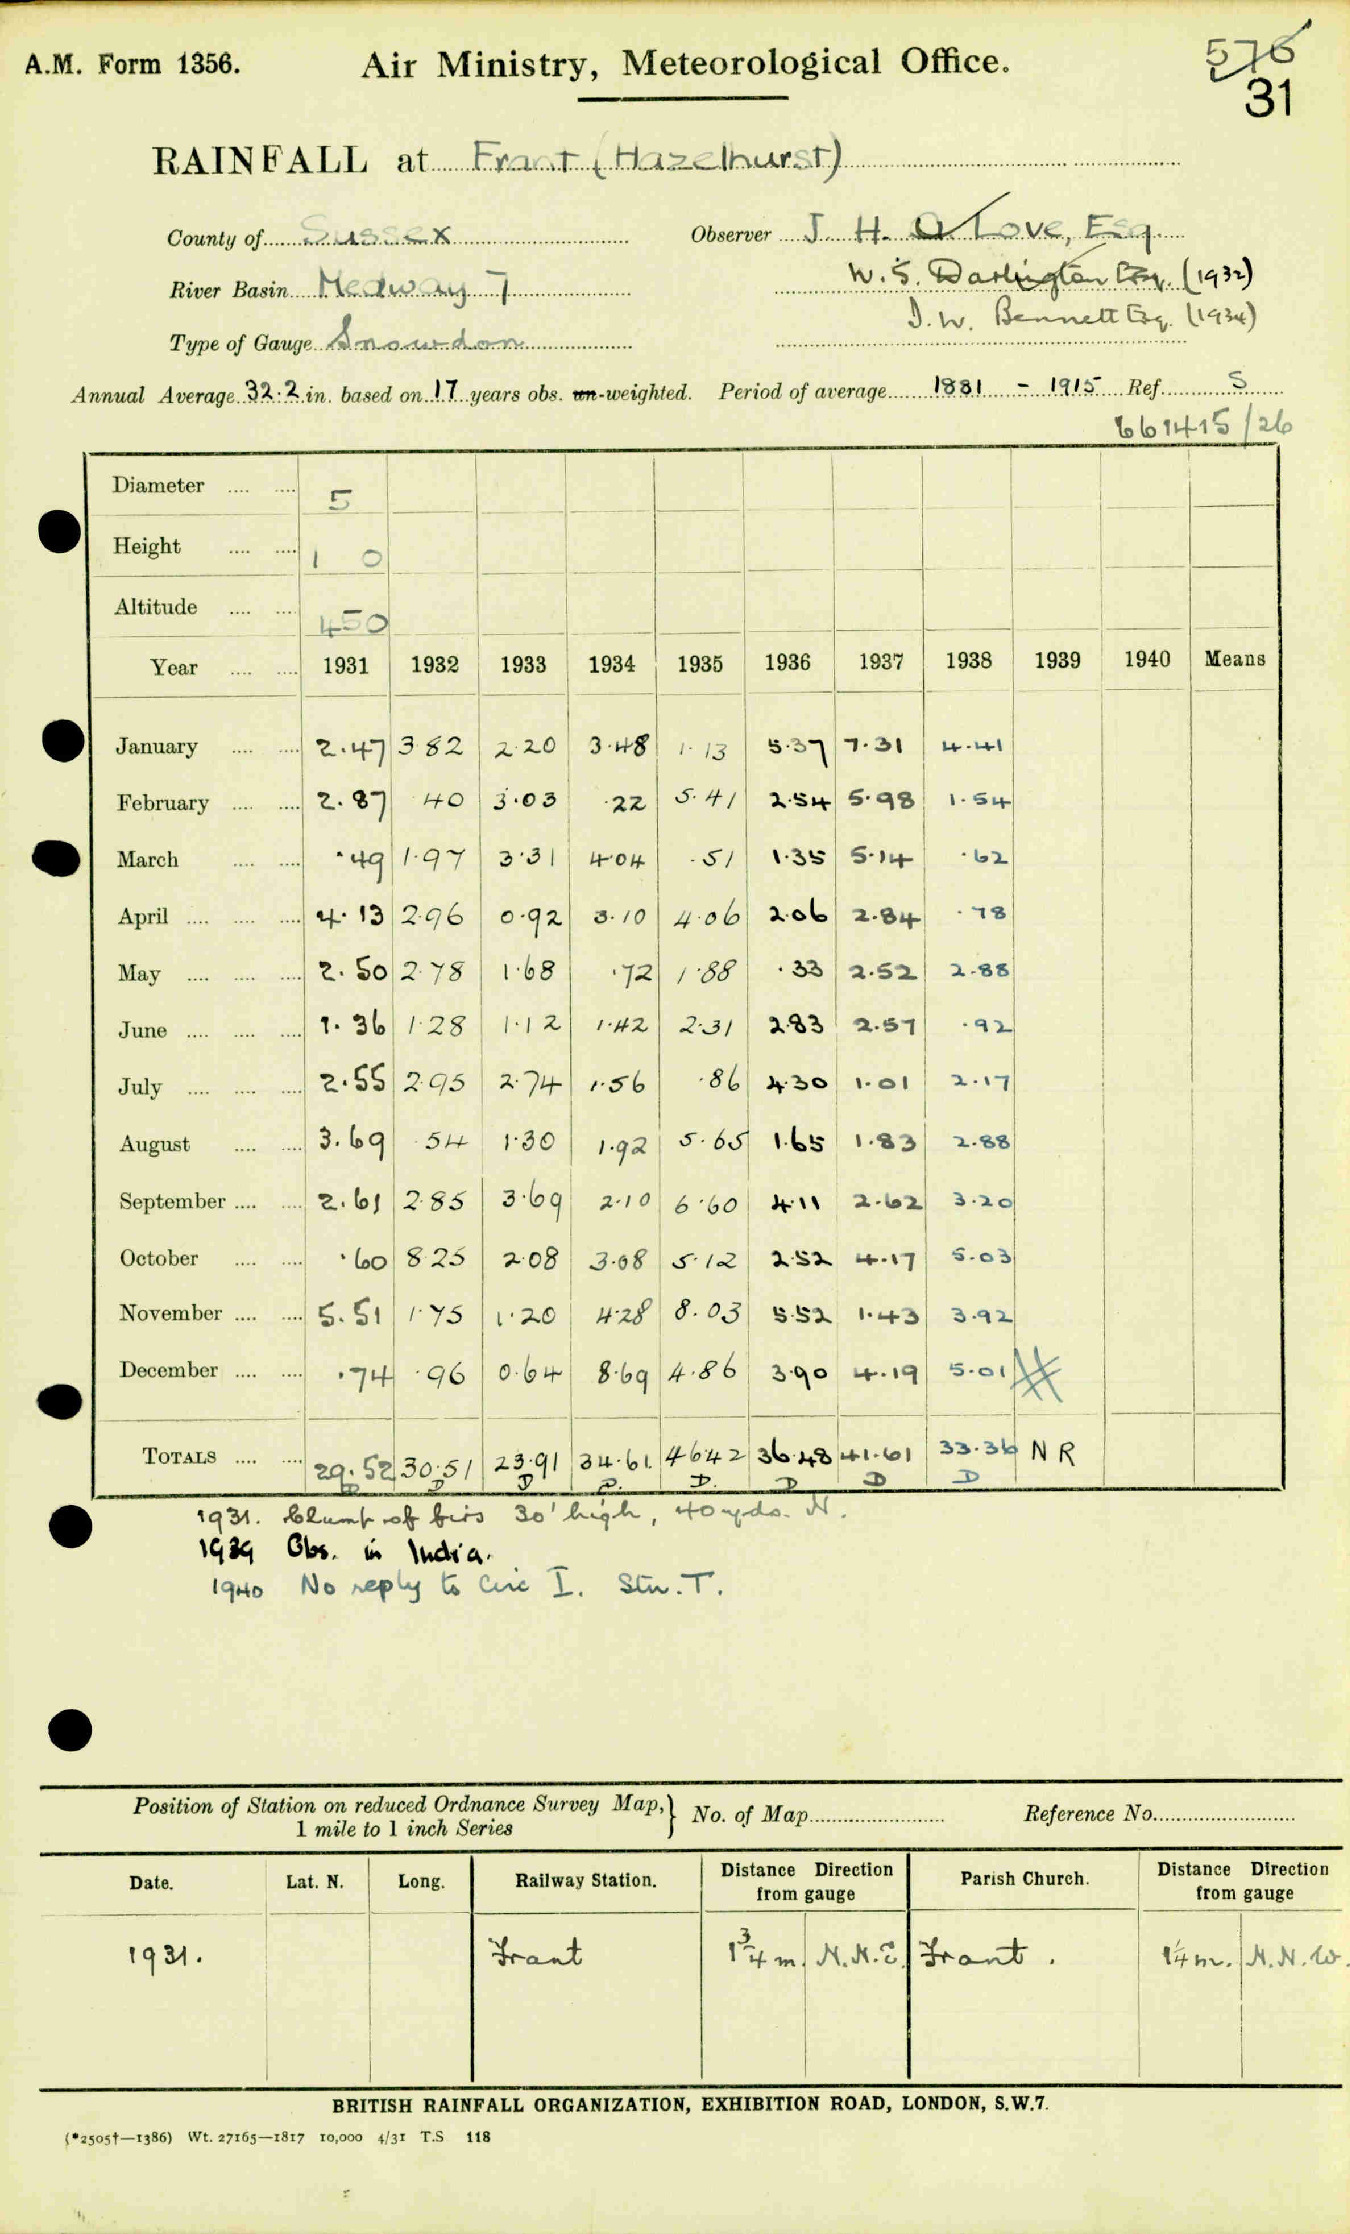 A.M. Form 1356. Air Ministry, Meteorological Office. 576
31
RAINFALL at Frant (Hazelhurst)
County of Sussex Observer J. H. Love, Esq
River Basin Medway 7 W. S. Darlington Esq. (1932)
D. W. Bennett Esq. (1934)
Type of Gauge Snowdon
Annual Average 32.2 in. based on 17 years obs. un-weighted. Period of average 1881 - 1915 Ref. S
661415/26
Diameter .... .... 5
Height .... .... 1 0
Altitude .... .... 450
Year .... .... 1931 1932 1933 1934 1935 1936 1937 1938 1939 1940 Means
January .... .... 2.47 3 82 2 20 3.48 1.13 5.37 7.31 4.41
February .... .... 2.87 40 3.03 .22 5.41 2.54 5.98 1.54
March .... .... .49 1.97 3.31 4.04 .51 1.35 5.14 .62
April .... .... .... 4.13 2.96 0.92 3.10 4.06 2.06 2.84 .78
May .... .... .... 2.50 2.78 1.68 .72 1.88 .33 2.52 2.88
June .... .... .... 1.36 1.28 1.12 1.42 2.31 2.83 2.57 .92
July .... .... .... 2.55 2.95 2.74 1.56 .86 4.30 1.01 2.17
August .... .... 3.69 .54 1.30 1.92 5.65 1.65 1.83 2.88
September .... .... 2.61 2.85 3.69 2.10 6.60 4.11 2.62 3.20
October .... .... .60 8.25 2.08 3.08 5.12 2.52 4.17 5.03
November .... .... 5.51 1.75 1.20 4.28 8.03 5.52 1.43 3.92
December .... .... .74 .96 0.64 8.69 4.86 3.90 4.19 5.01
TOTALS .... .... 29.52 30.51 23.91 34.61 46.42 36.48 41.61 33.36 N R
D D D D. D. D D D
1931. Clump of firs 30' high, 40 yds. N.
1939 Obs. in India.
1940 No reply to Circ I. Stn. T.
Position of Station on reduced Ordnance Survey Map, } No. of Map Reference No.
1 mile to 1 inch Series
Date. Lat. N. Long. Railway Station. Distance Direction from gauge Parish Church. Distance Direction from gauge
1931. Frant 1 3/4 m. N.N.E. Frant. 1 1/4 m. N.N.W.
BRITISH RAINFALL ORGANIZATION, EXHIBITION ROAD, LONDON, S.W.7.
(*2505†—1386) Wt. 27165—1817 10,000 4/31 T.S 118